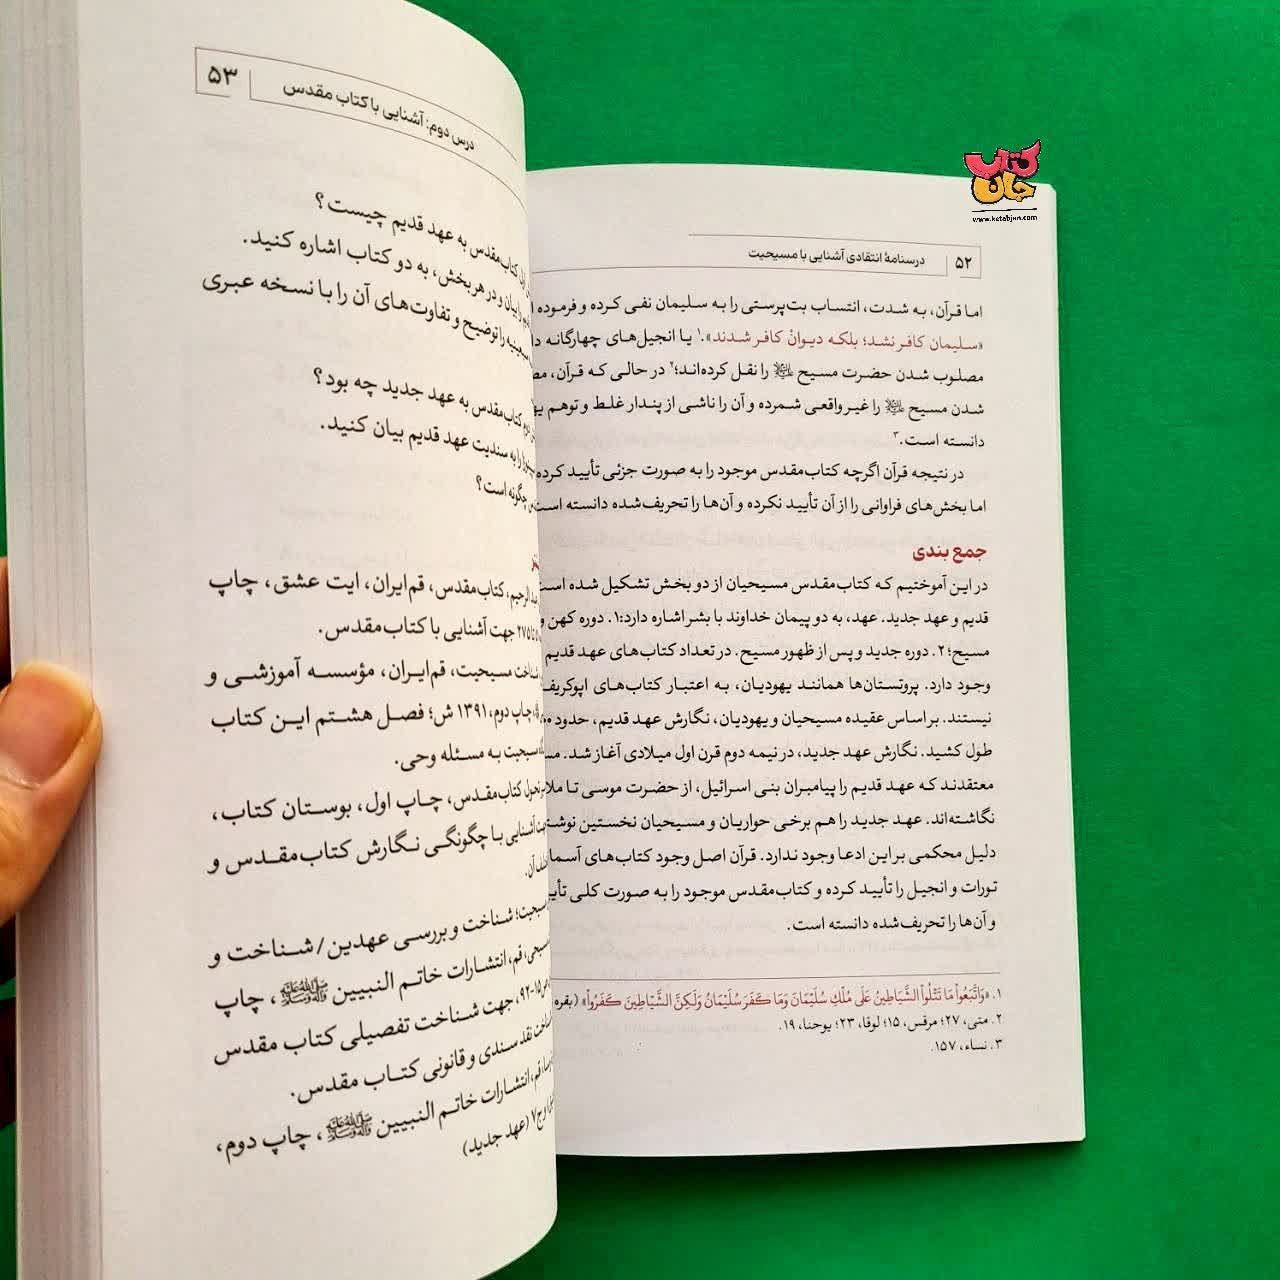 کتاب
جان
www.ketabjan.com
۵۲
درسنامهٔ انتقادی آشنایی با مسیحیت
اما قرآن، به شدت، انتساب بت‌پرستی را به سلیمان نفی کرده و فرموده
«سلیمان کافر نشد؛ بلکه دیوانْ کافر شدند».۱ یا انجیل‌های چهارگانه
مصلوب شدن حضرت مسیح را نقل کرده‌اند؛۲ در حالی که قرآن،
شدن مسیح را غیرواقعی شمرده و آن را ناشی از پندار غلط و توهم
دانسته است.۳
در نتیجه قرآن اگرچه کتاب‌مقدس موجود را به صورت جزئی تأیید کرده
اما بخش‌های فراوانی را از آن تأیید نکرده و آن‌ها را تحریف‌شده دانسته است
جمع بندی
در این آموختیم که کتاب‌مقدس مسیحیان از دو بخش تشکیل شده است
قدیم و عهد جدید. عهد، به دو پیمان خداوند با بشر اشاره دارد:۱. دوره کهن و
مسیح؛ ۲. دوره جدید و پس از ظهور مسیح. در تعداد کتاب‌های عهد قدیم
وجود دارد. پروتستان‌ها همانند یهودیان، به اعتبار کتاب‌های
نیستند. بر اساس عقیده مسیحیان و یهودیان، نگارش عهد قدیم، حدود
طول کشید. نگارش عهد جدید، در نیمه دوم قرن اول میلادی آغاز شد.
معتقدند که عهد قدیم را پیامبران بنی اسرائیل، از حضرت موسی تا
نگاشته‌اند. عهد جدید را هم برخی حواریان و مسیحیان نخستین
دلیل محکمی بر این ادعا وجود ندارد. قرآن اصل وجود کتاب‌های
تورات و انجیل را تأیید کرده و کتاب‌مقدس موجود را به صورت کلی
و آن‌ها را تحریف‌شده دانسته است.
۱. «وَاتَّبَعُواْ مَا تَتْلُواْ الشَّیَاطِینُ عَلَی مُلْکِ سُلَیْمَانَ وَمَا کَفَرَ سُلَیْمَانُ وَلَکِنَّ الشَّیَاطِینَ کَفَرُواْ» (بقره
۲. متی، ۲۷؛ مرقس، ۱۵؛ لوقا، ۲۳؛ یوحنا، ۱۹.
۳. نساء، ۱۵۷.
۵۳
درس دوم: آشنایی با کتاب مقدس
کتاب‌مقدس به عهد قدیم چیست؟
را بیان و در هر بخش، به دو کتاب اشاره کنید.
را توضیح و تفاوت‌های آن را با نسخه عبری
کتاب‌مقدس به عهد جدید چه بود؟
را به سندیت عهد قدیم بیان کنید.
چگونه است؟
کتاب‌مقدس، قم‌ایران، ایت عشق، چاپ
۲۷۵ جهت آشنایی با کتاب‌مقدس.
شناخت مسیحیت، قم‌ایران، مؤسسه آموزشی و
چاپ دوم، ۱۳۹۱ ش؛ فصل هشتم این کتاب
مسیحیت به مسئله وحی.
تحول کتاب‌مقدس، چاپ اول، بوستان کتاب،
آشنایی با چگونگی نگارش کتاب‌مقدس و
آن.
مسیحیت؛ شناخت و بررسی عهدین/شناخت و
مسیحی، قم، انتشارات خاتم النبیین ﷺ، چاپ
۱۵-۹۲، جهت شناخت تفصیلی کتاب مقدس
شناخت نقد سندی و قانونی کتاب مقدس.
قم، انتشارات خاتم النبیین ﷺ، چاپ دوم،
و ج۷ (عهد جدید)